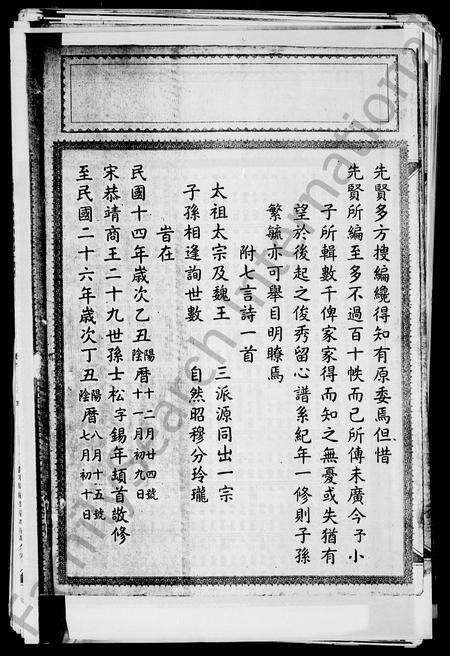 先賢多方搜編纔得知有原委焉但惜
先賢所編至多不過百十帙而已所傳未廣今予小
子所輯數千俾家家得而知之無憂或失猶有
望於後起之俊秀留心譜系紀年一修則子孫
繁毓亦可舉目明瞭焉
附七言詩一首
太祖太宗及魏王 三派源同出一宗
子孫相逢詢世數 自然昭穆分玲瓏
旹在
民國十四年歲次乙丑陽陰曆十二月廿四號十一月初九日
宋恭靖商王二十九世孫士松字錫年頓首敬修
至民國二十六年歲次丁丑陽陰曆八月十五號七月初十日
Family Search International